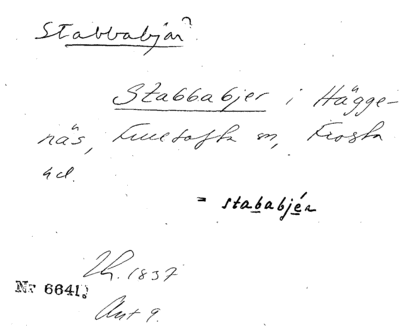 Stabbabjär
Stabbabjer i Hägge-
näs, Fulltofta sn, Frosta
hd.
= stababjér
Th. 1837
Nr 6641.
Ant 9.